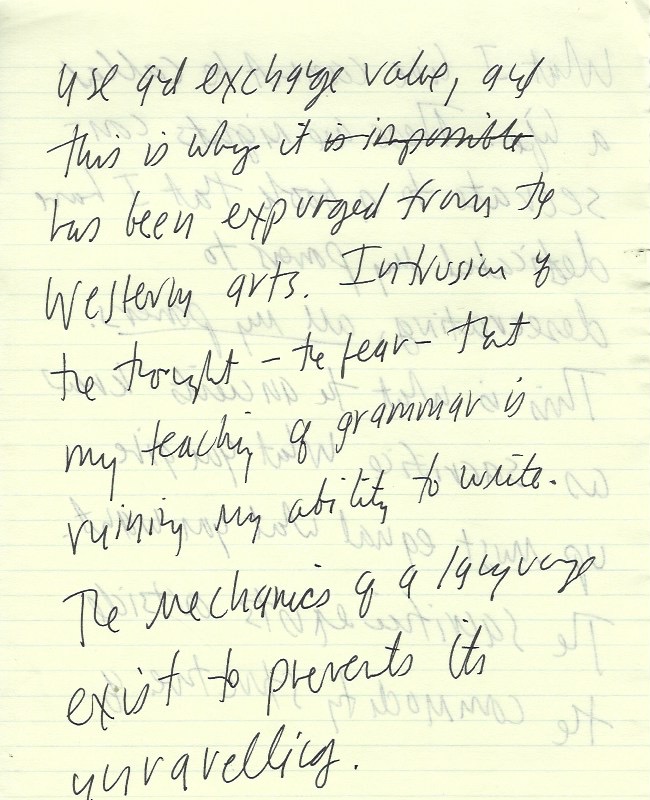 use and exchange value, and
this is why it is impossible
has been expurged from the
Western arts. Intrusion of
the thought – the fear – that
my teaching of grammar is
ruining my ability to write.
The mechanics of a language
exist to prevents its
unravelling.